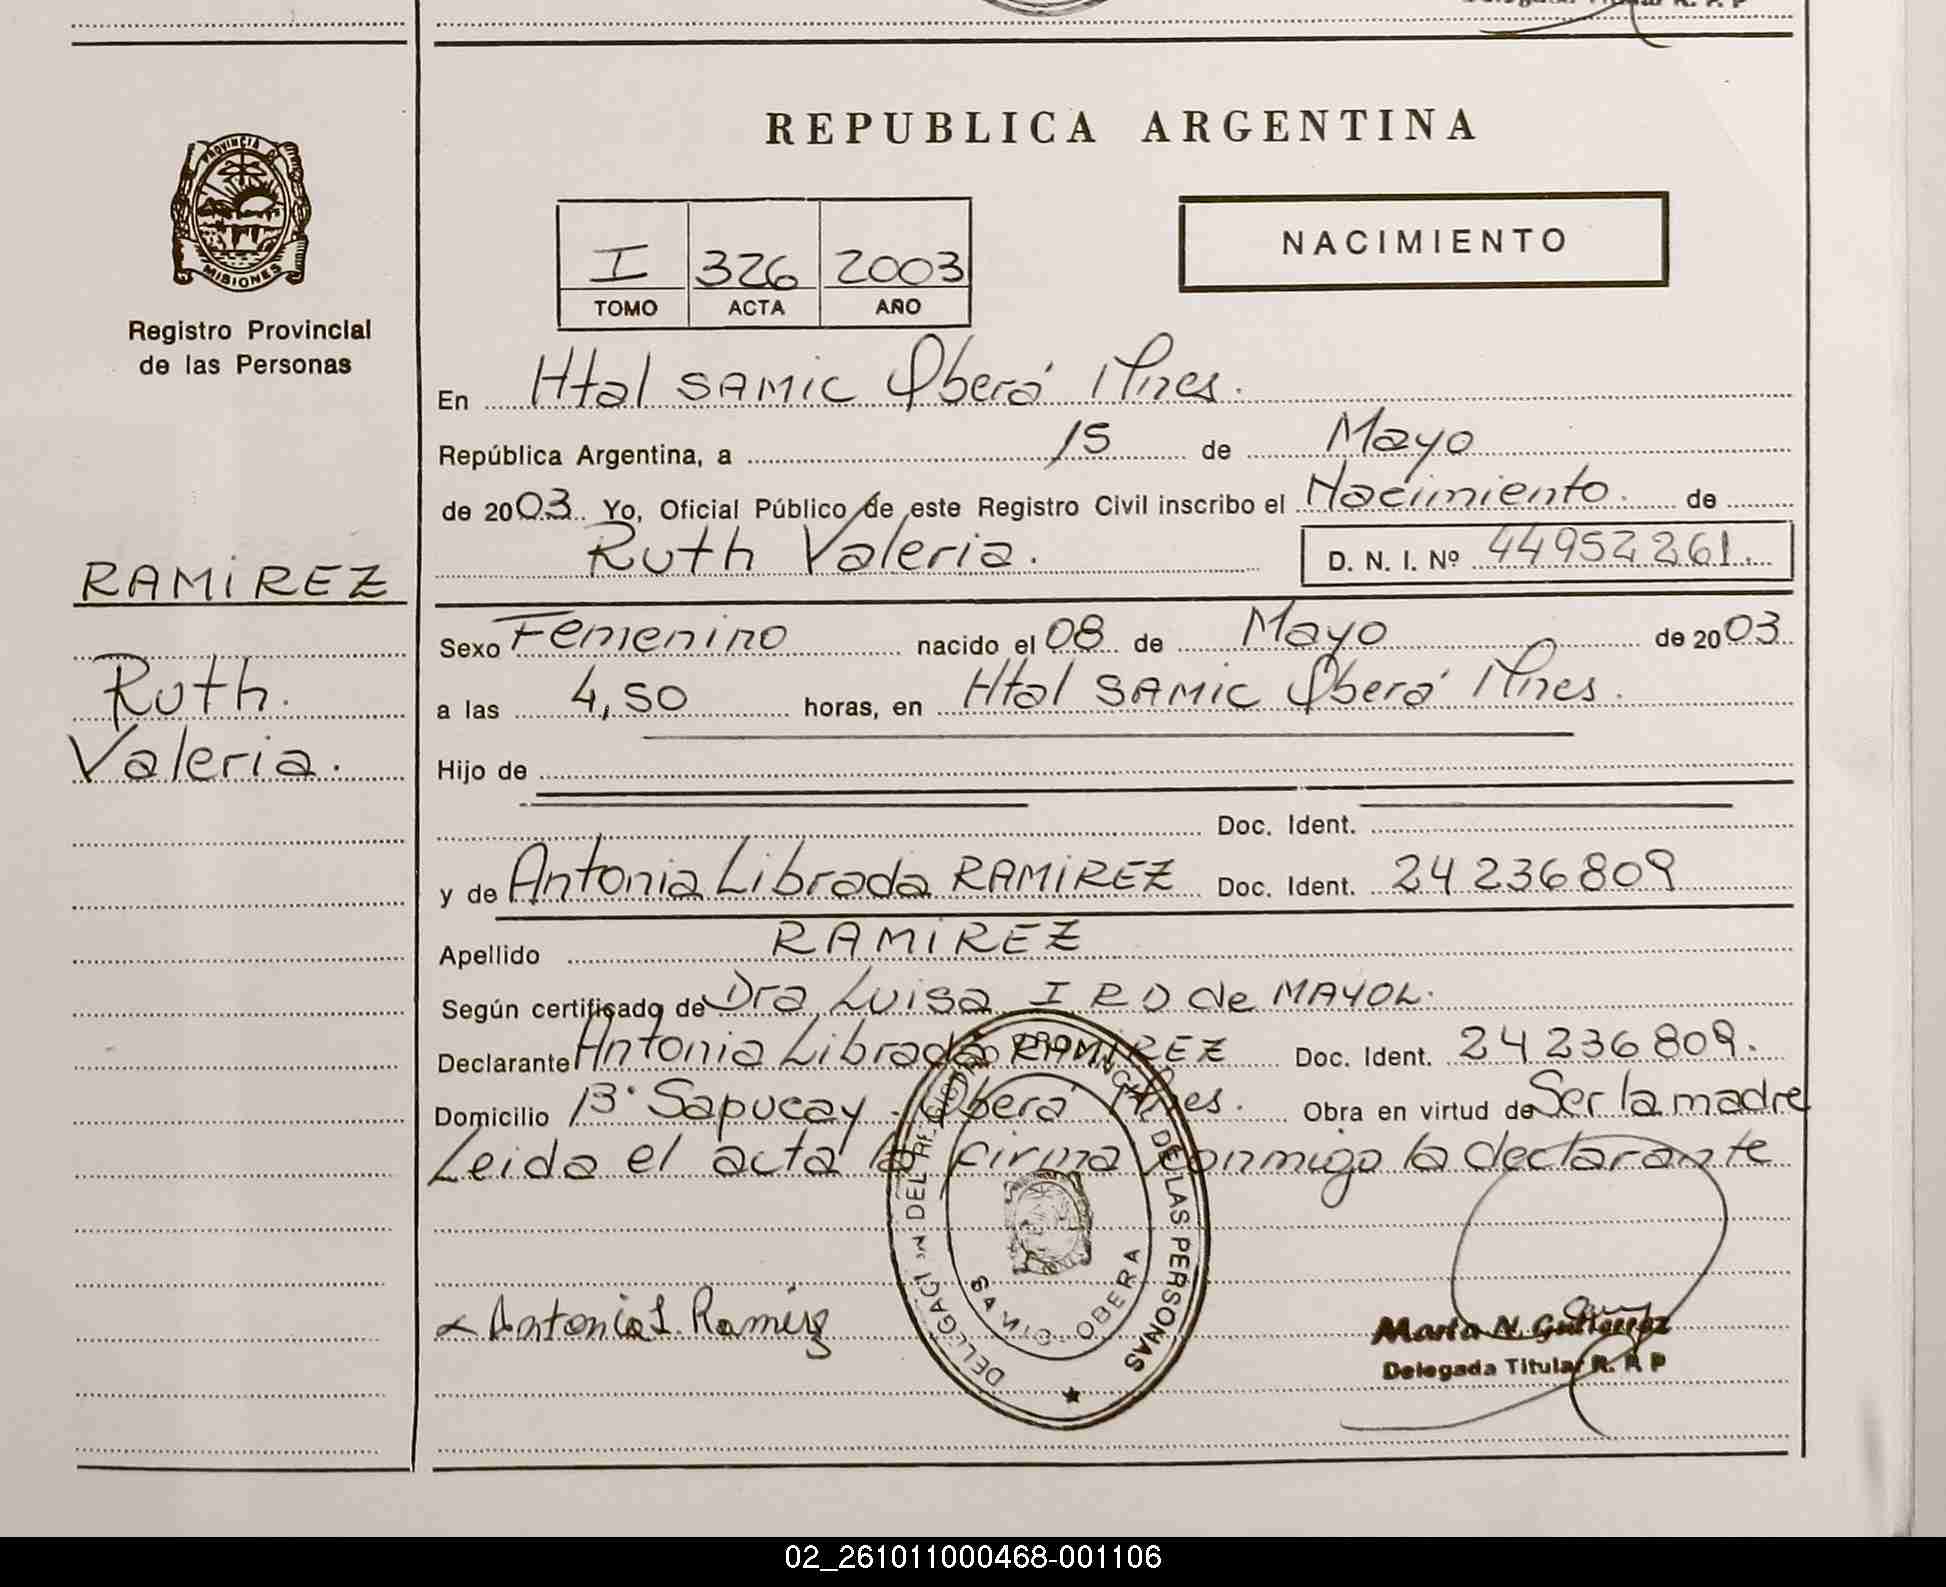 REPUBLICA ARGENTINA
PROVINCIA D
MISIONES
Registro Provincial
de las Personas
RAMIREZ
Ruth.
Valeria.
I 326 2003
TOMO ACTA AÑO
NACIMIENTO
En Htal SAMIC Oberá Mnes.
República Argentina, a 15 de Mayo
de 2003. Yo, Oficial Público de este Registro Civil inscribo el Nacimiento. de
Ruth Valeria. D. N. I. Nº 44952261.
Sexo Femenino nacido el 08 de Mayo de 2003
a las 4,50 horas, en Htal SAMIC Oberá Mnes.
Hijo de
Doc. Ident.
y de Antonia Librada RAMIREZ Doc. Ident. 24 236 809
Apellido RAMIREZ
Según certificado de Dra Luisa I RD de MAYOL.
Declarante Antonia Librada RAMIREZ Doc. Ident. 24 236 809.
Domicilio Bº Sapucay. Oberá Mnes. Obra en virtud de Ser la madre
Leida el acta la firma conmigo la declarante
DELEGACI N DEL PROVINCIAL DE LAS PERSONAS
OBERA
Antonia L. Ramirez
Maria N. Gutierrez
Delegada Titular R. P. P
02_261011000468-001106